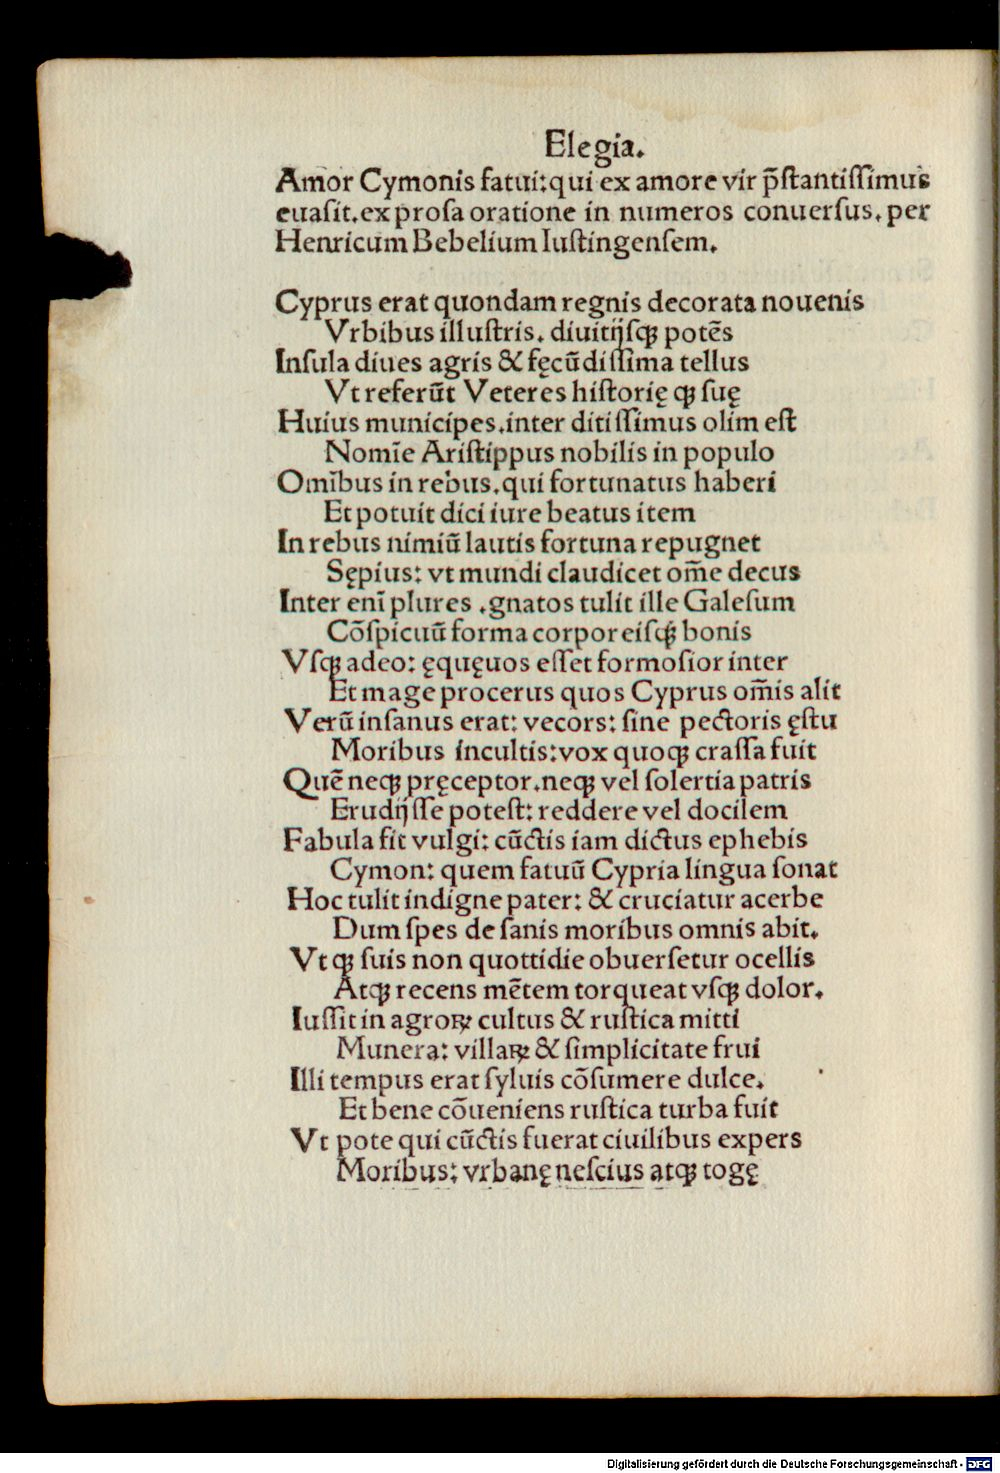 Elegia.
Amor Cymonis fatui: qui ex amore vir p̄stantissimus
euasit. ex prosa oratione in numeros conuersus. per
Henricum Bebelium Iustingensem.
Cyprus erat quondam regnis decorata nouenis
Vrbibus illustris. diuitijsqꝫ potēs
Insula diues agris & fęcūdissima tellus
Vt referūt Veteres historię qꝫ suę
Huius municipes. inter ditissimus olim est
Nomīe Aristippus nobilis in populo
Omībus in rebus. qui fortunatus haberi
Et potuit dici iure beatus item
In rebus nimiū lautis fortuna repugnet
Sępius: vt mundi claudicet om̄e decus
Inter enī plures . gnatos tulit ille Galesum
Cōspicuū forma corporeisqꝫ bonis
Vsqꝫ adeo: ęquęuos esset formosior inter
Et mage procerus quos Cyprus om̄is alit
Verū insanus erat: vecors: sine pectoris ęstu
Moribus incultis: vox quoqꝫ crassa fuit
Quē neqꝫ pręceptor. neqꝫ vel solertia patris
Erudijsse potest: reddere vel docilem
Fabula fit vulgi: cūctis iam dictus ephebis
Cymon: quem fatuū Cypria lingua sonat
Hoc tulit indigne pater: & cruciatur acerbe
Dum spes de sanis moribus omnis abit.
Vt qꝫ suis non quottidie obuersetur ocellis
Atqꝫ recens mētem torqueat vsqꝫ dolor.
Iussit in agroꝝ cultus & rustica mitti
Munera: villaꝝ & simplicitate frui
Illi tempus erat syluis cōsumere dulce.
Et bene cōueniens rustica turba fuit
Vt pote qui cūctis fuerat ciuilibus expers
Moribus: vrbanę nescius atqꝫ togę
Digitalisierung gefördert durch die Deutsche Forschungsgemeinschaft - DFG